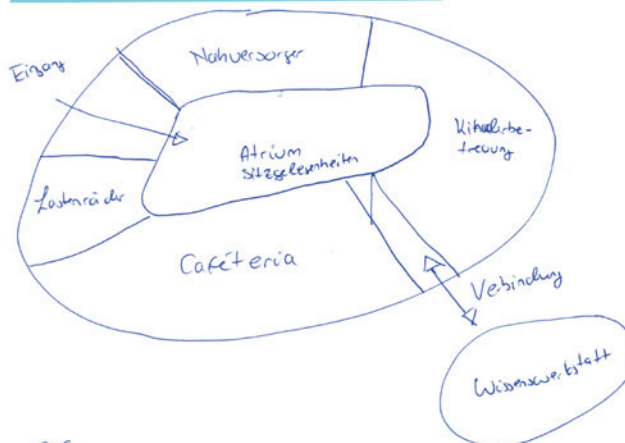 Nahversorger
Eingang
Atrium
Sitzgelegenheiten
Kinderbe-
treuung
Lastenräder
Caféteria
Verbindung
Wissenswerkstatt